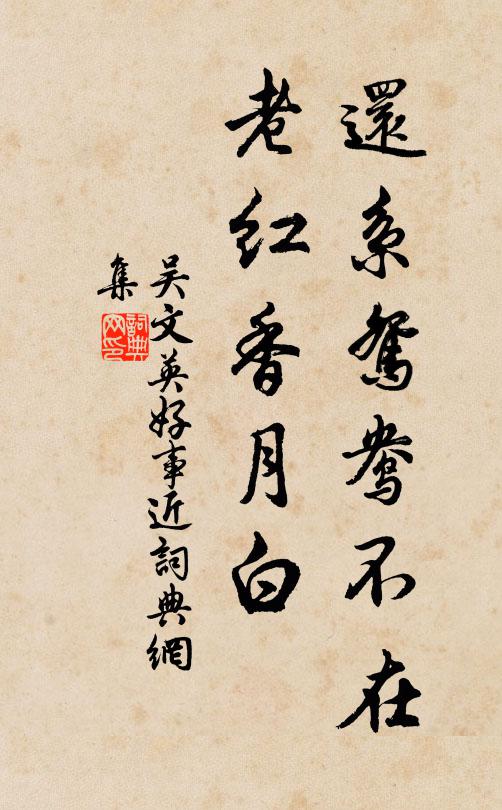 還系鴛鴦不在
老红香月白
吴文英好事近詞典網
集
詞典
网印